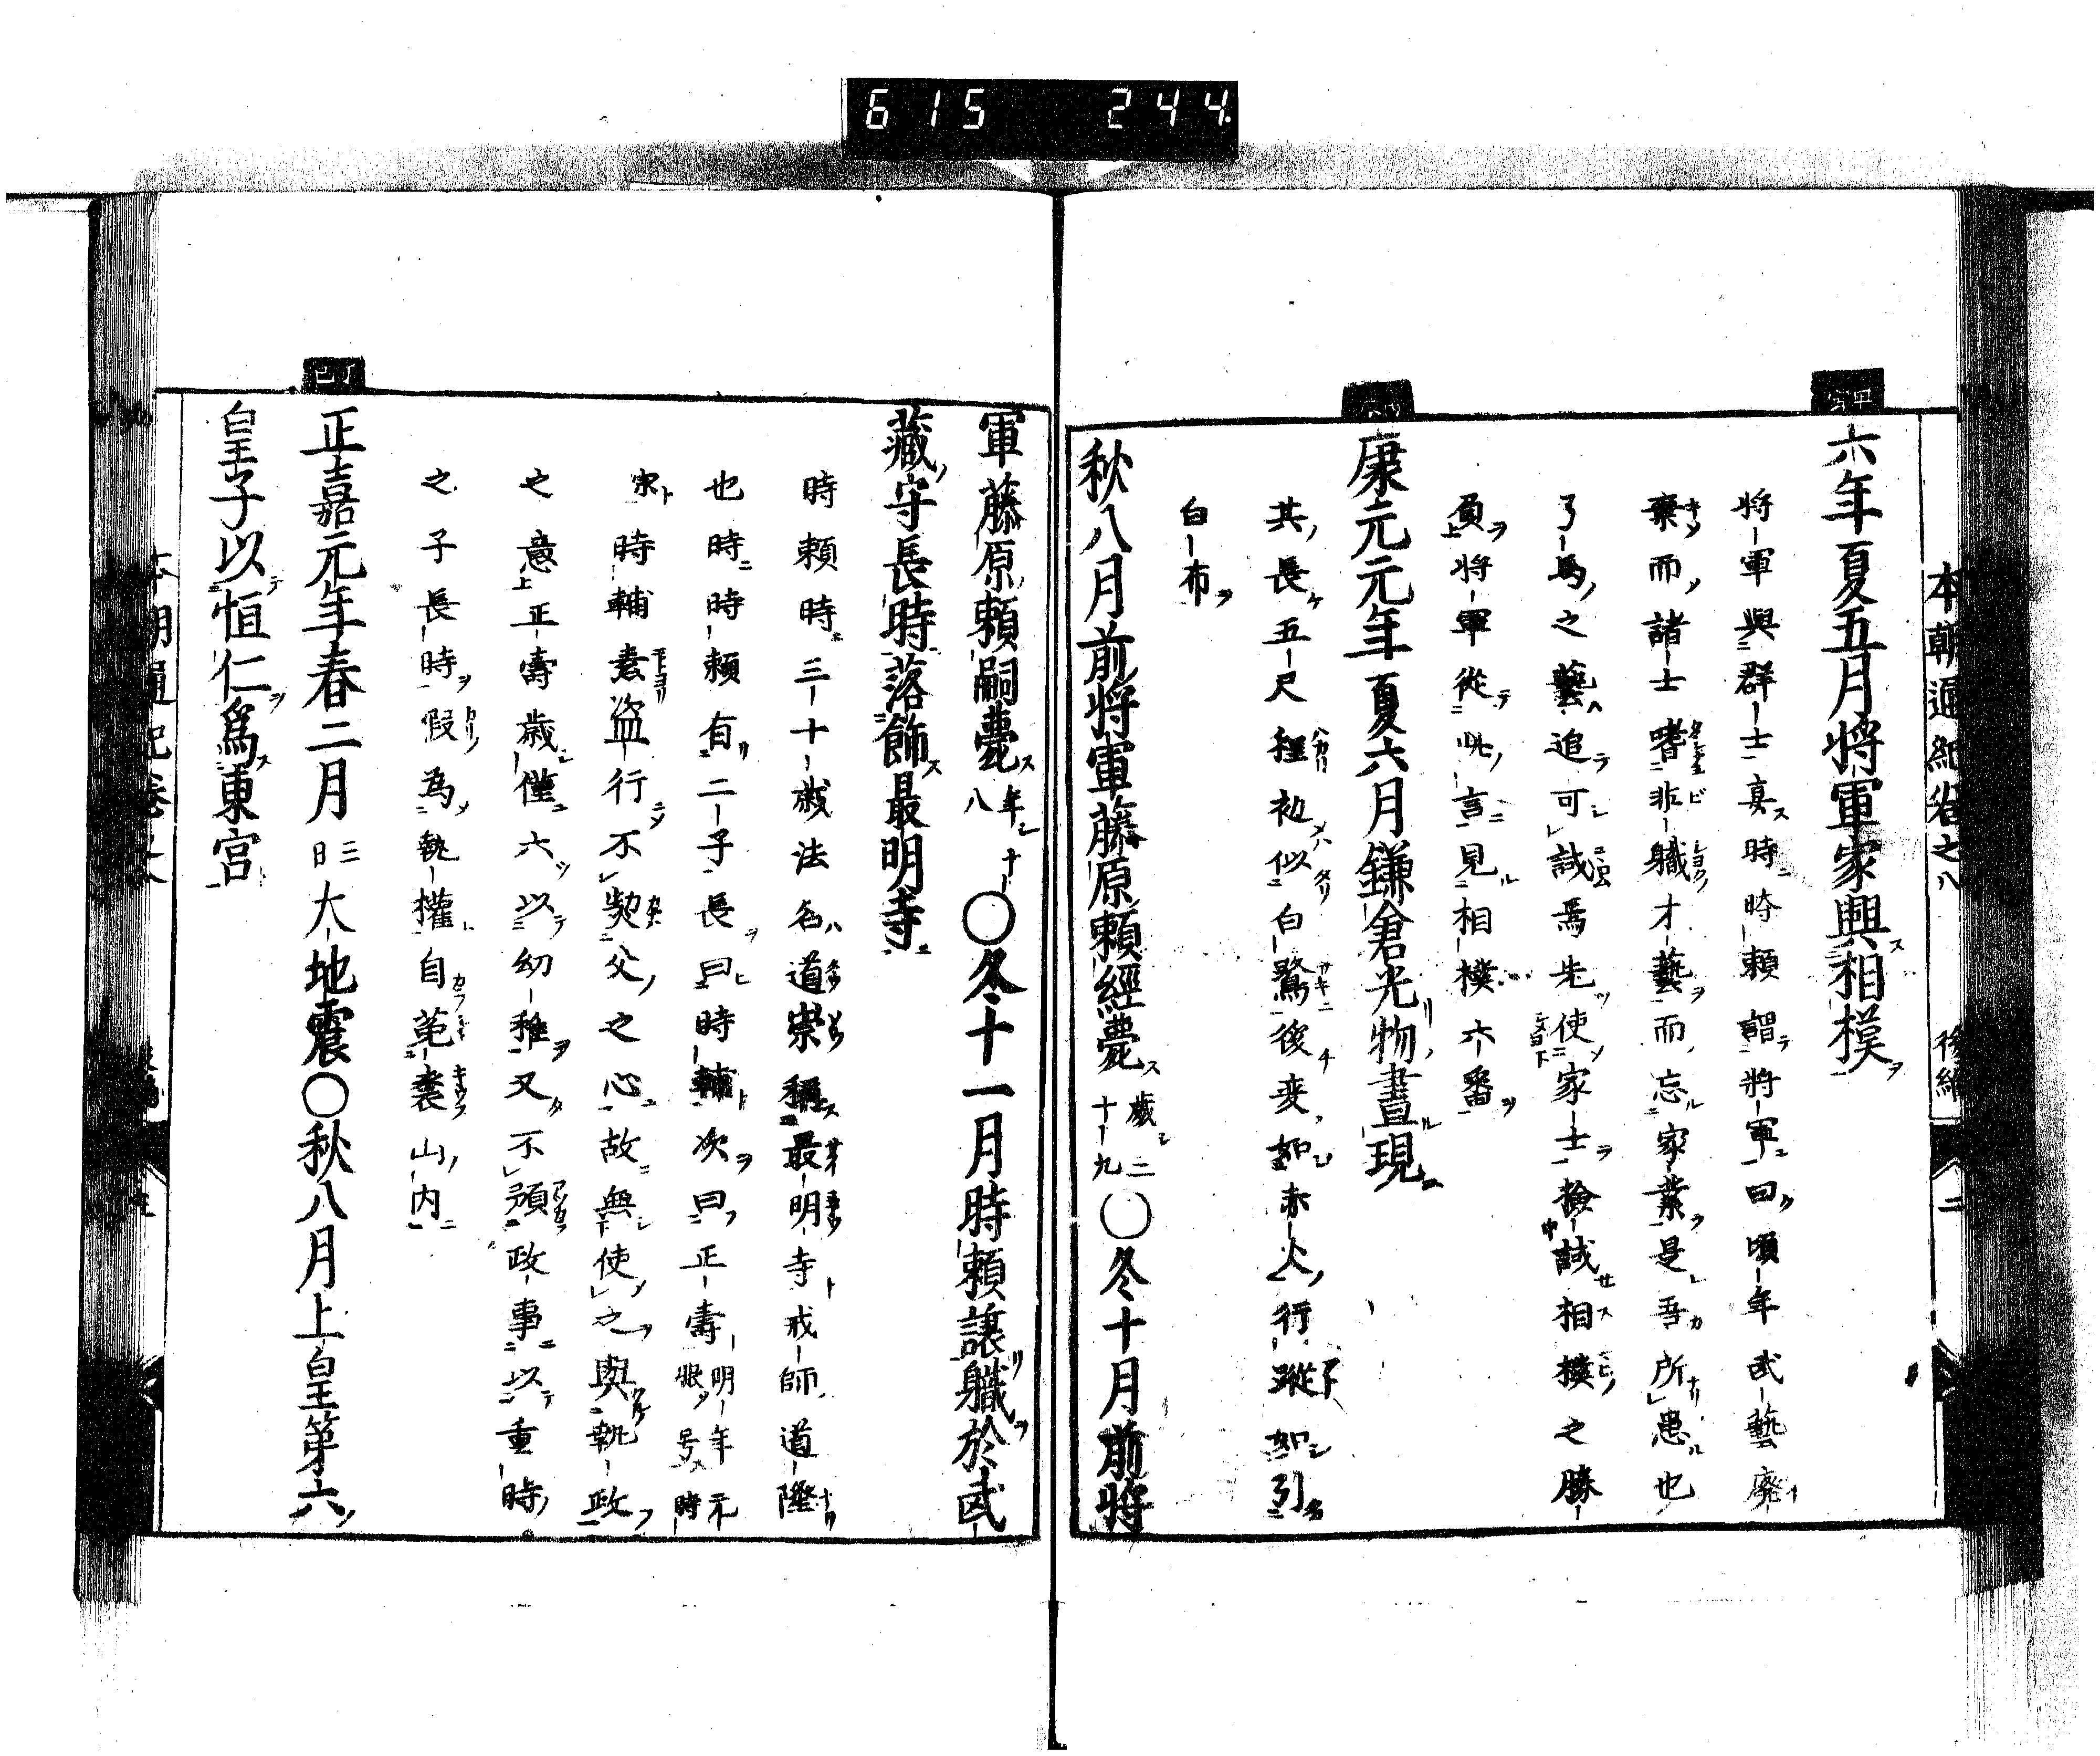 615 244.
本朝通紀卷之八 後編 二
六年夏五月將軍家興相撲
將軍與群士宴時時頼謂將軍曰頃年武藝廢
棄而諸士嗜非職才藝而忘家業是吾所患也
弓馬之藝追可試焉先使家士撿試相撲之勝
負將軍從此言見相撲六番
康元元年夏六月鎌倉光物晝現
其長五尺程初似白鷺後変如赤火行蹤如引
白布
秋八月前將軍藤原頼經薨歳三十九〇冬十月前將
軍藤原頼嗣薨年十八〇冬十一月時頼譲職於武
藏守長時落飾最明寺
時頼時三十歳法名道崇稱最明寺戒師道隆
也時時頼有二子長曰時輔次曰正壽明年元服号時
宗時輔素盗行不契父之心故無使之與執政
之意正壽歳僅六以幼稚又不預政事以重時
之子長時假為執權自莵裘山内
正嘉元年春二月三日大地震〇秋八月上皇第六
皇子以恒仁爲東宮